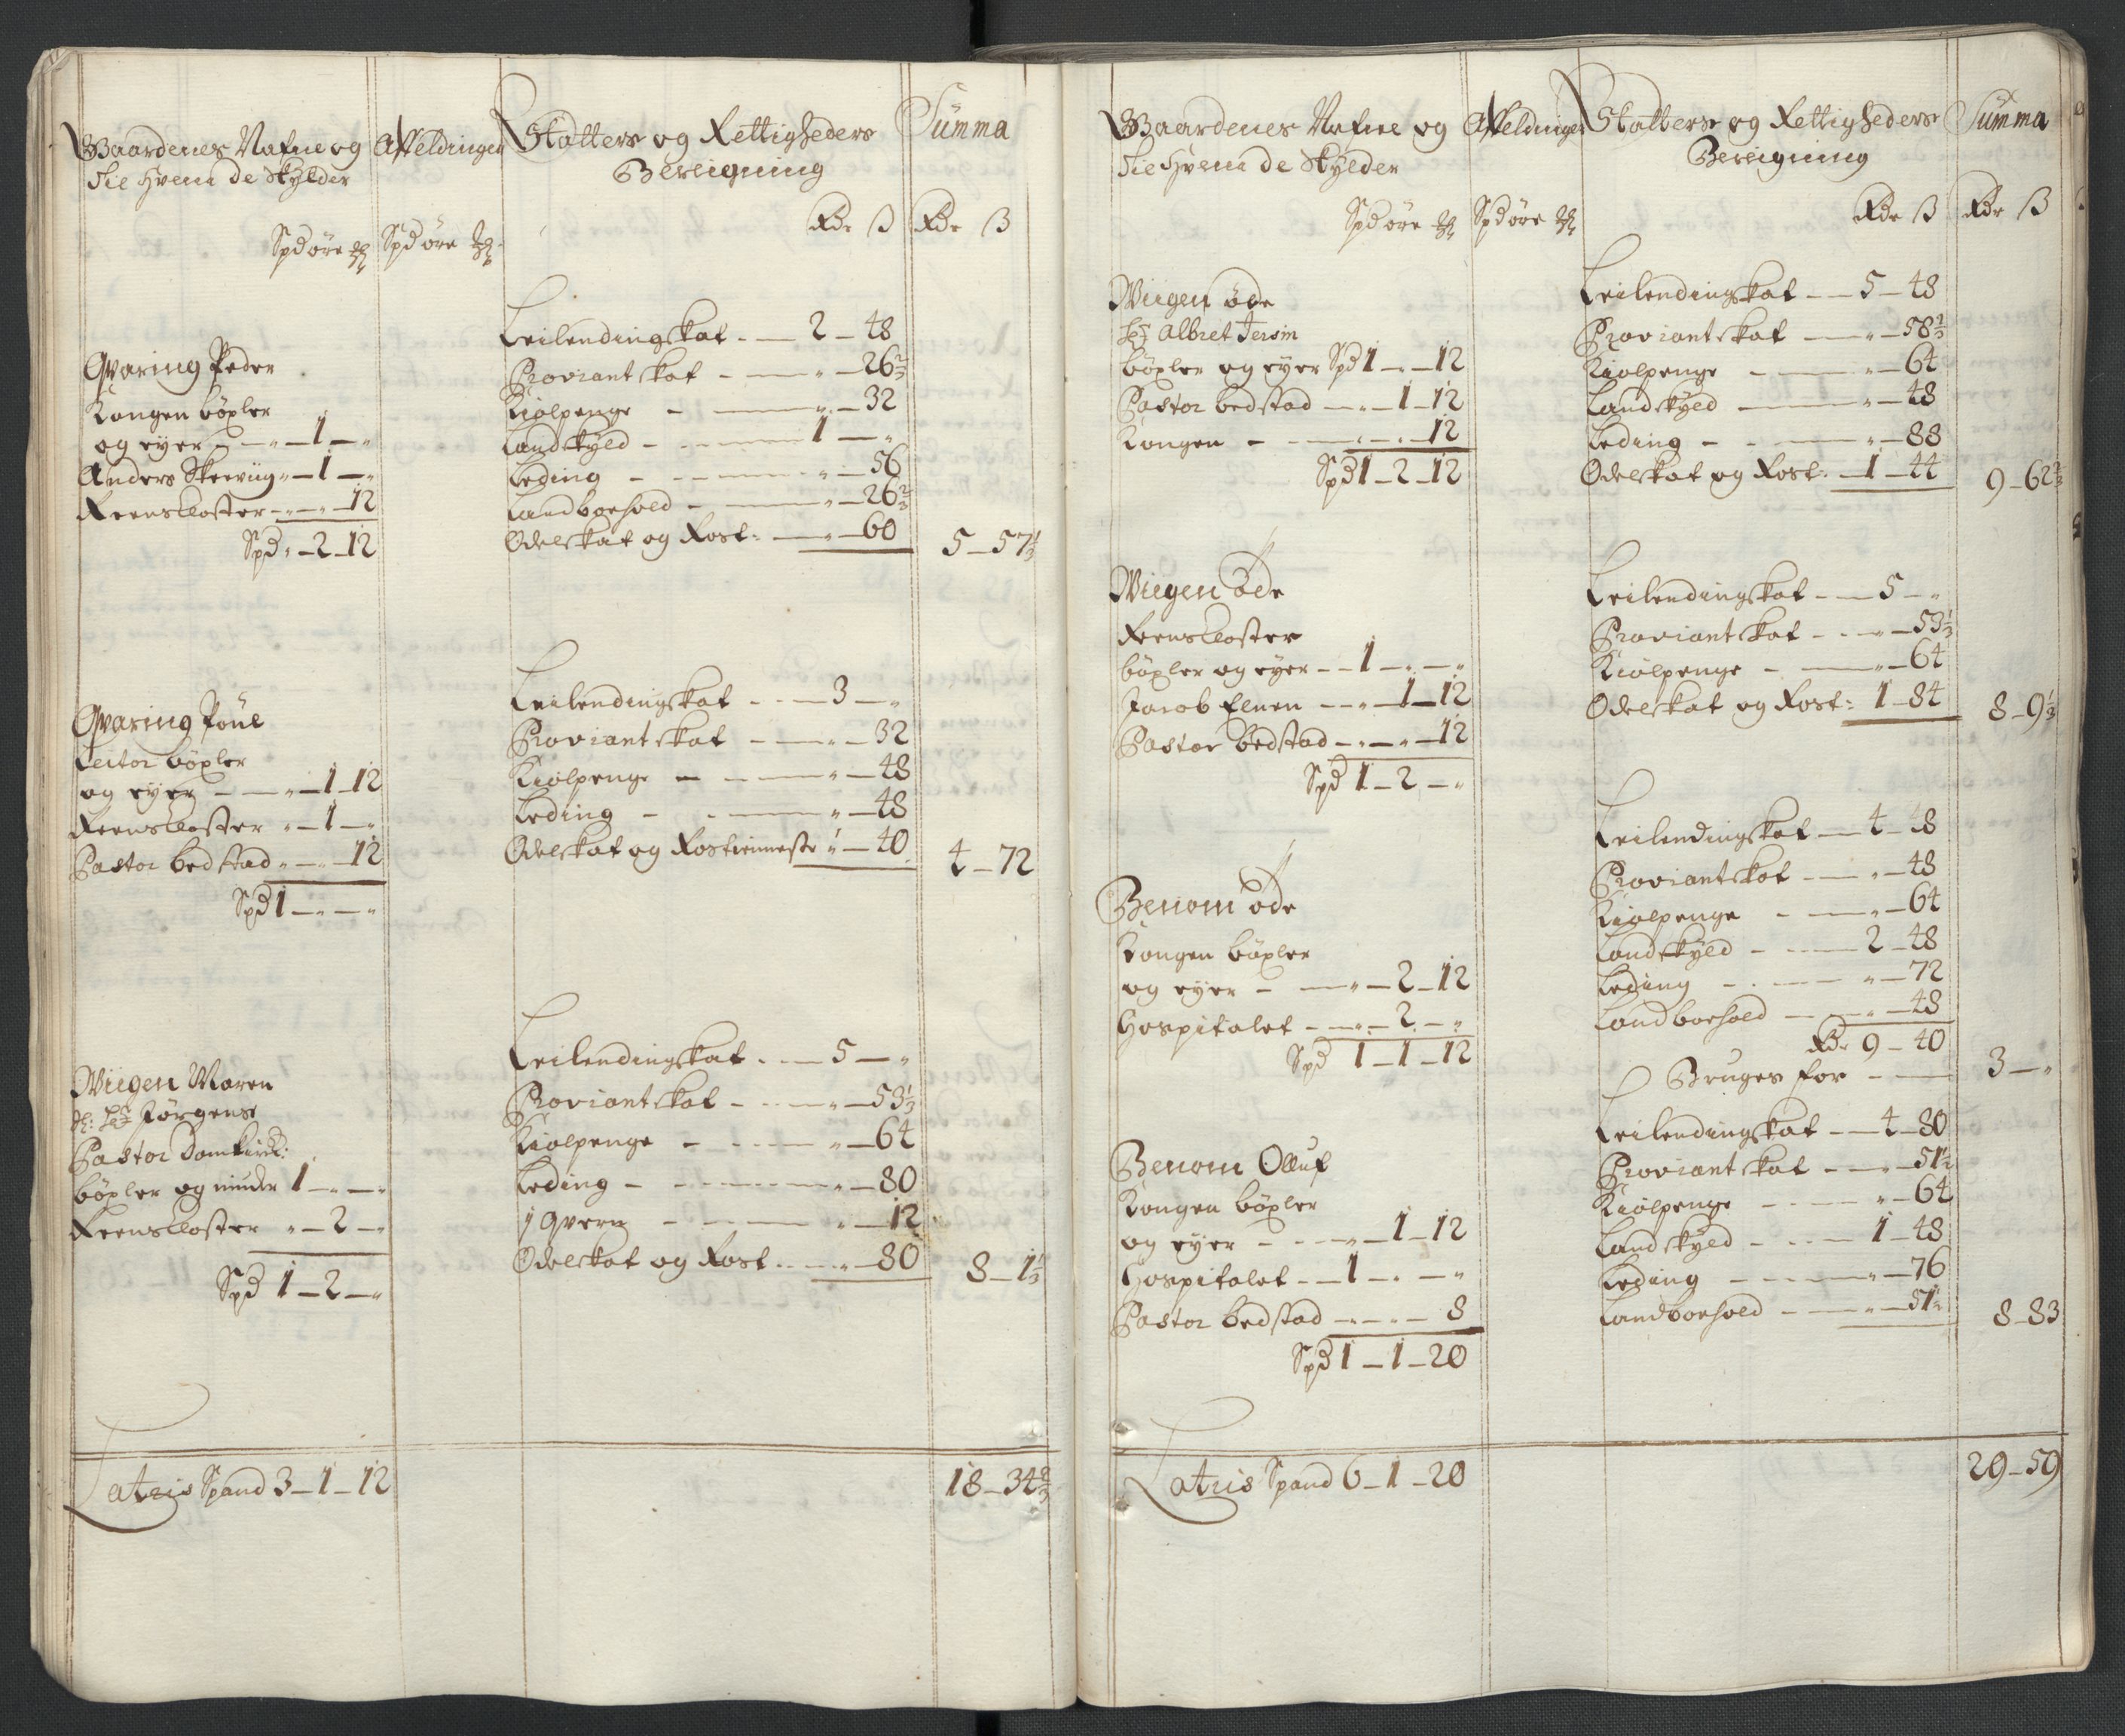 Gaardenes Nafne og
Tie Hvem de Skylder
Affeldinger
Skatters og Rettigheders
Beregning
Summa
Spd øre
Spd øre
Rdr ß
Rdr ß
Qvaring Peder
Kongen böxler
og eyer — " — 1 — "
Anders Skerviig " — 1 — "
Reensscloster — " — 12
Spd " — 2 — 12
Leilendingskat — 2 — 48
Proviantskat — " — 26 2/3
Kiølpenge — " — 32
Landskyld — 1 — "
Leding — " — 56
Landboehold — " — 26 2/3
Odelskat og Rost: — " — 60
5 — 57 1/3
Qvaring Poüel
Lector böxler
og eyer — " — 1 — 12
Reenscloster " — 1 — "
Pastor bedstad " — " — 12
Spd 1 — " — "
Leilendingskat — 3 — "
Proviantskat — " — 32
Kiølpenge — " — 48
Leding — " — 48
Odelskat og Rostienneste " — 40
4 — 72
Wiigen Maren
Sl: Hr Jørgens
Pastor Domkirck:
böxler og minder 1 — " — "
Reenscloster " — 2 — "
Spd 1 — 2 — "
Leilendingskat — 5 — "
Proviantskat — " — 53 1/3
Kiølpenge — " — 64
Leding — " — 80
1 Qvern — " — 12
Odelskat og Rost — " — 80
8 — 1 1/3
Latris Spand 3 — 1 — 12
18 — 34 2/3
Gaardenes Nafne og
Tie Hvem de Skylder
Affeldinger
Skatters og Rettigheders
Beregning
Summa
Spd øre
Spd øre
Rdr ß
Rdr ß
Wiigen øde
Hr Albret Jersin
böxler og eyer Spd 1 — " — 12
Pastor bedstad — " — 1 — 12
Kongen — " — " — 12
Spd 1 — 2 — 12
Leilendingskat — 5 — 48
Proviantskat — " — 58 2/3
Kiølpenge — " — 64
Landskyld — " — 48
Leding — " — 88
Odelskat og Rost: — 1 — 44
9 — 62 2/3
Wiigen øde
Reenscloster
böxler og eyer — 1 — " — "
Jacob Elnen — " — 1 — 12
Pastor bedstad — " — " — 12
Spd 1 — 2 — "
Leilendingskat — 5 — "
Proviantskat — " — 53 1/3
Kiølpenge — " — 64
Odelskat og Rost: 1 — 84
8 — 9 1/3
Benom øde
Kongen böxler
og eyer — " — 2 — 12
Hospitalet — " — 2 — "
Spd 1 — 1 — 12
Leilendingskat — 4 — 48
Proviantskat — " — 48
Kiølpenge — " — 64
Landskyld — 2 — 48
Leding — " — 72
Landboehold — " — 48
Rdr 9 — 40
Bruges for —
3 — "
Benom Olluf
Kongen böxler
og eyer — " — 1 — 12
Hospitalet — 1 — " — "
Pastor bedstad — " — " — 8
Spd 1 — 1 — 20
Leilendingskat — 4 — 80
Proviantskat — " — 51 1/2
Kiølpenge — " — 64
Landskyld — 1 — 48
Leding — " — 76
Landboehold — " — 51 1/2
8 — 83
Latris Spand 6 — 1 — 20
29 — 59